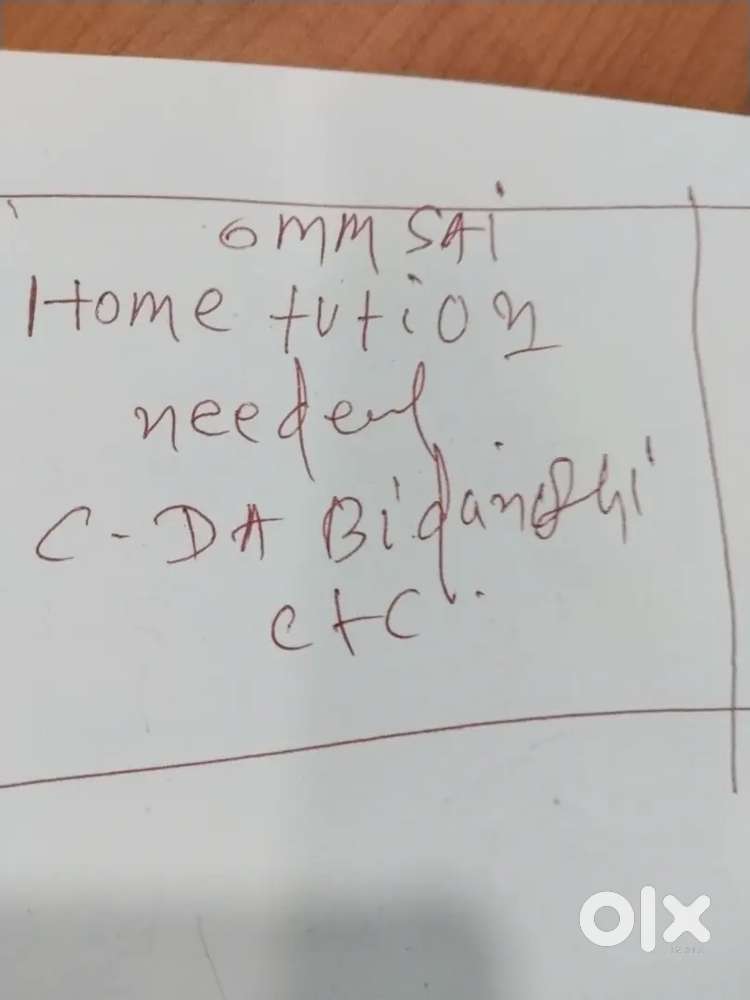 OMM SAi
Home tution
needed
C-DA Bidanashi
etc.
olx